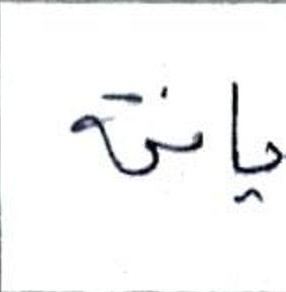 يانة